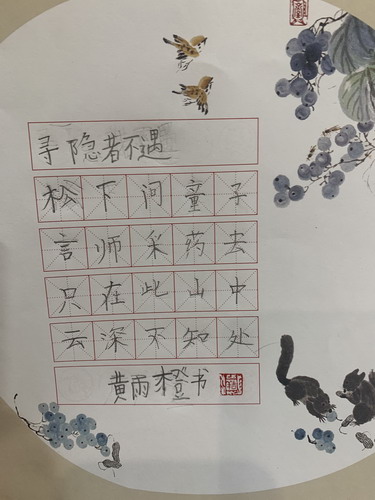 寻隐者不遇
松下问童子
言师采药去
只在此山中
云深不知处
黄雨橙书